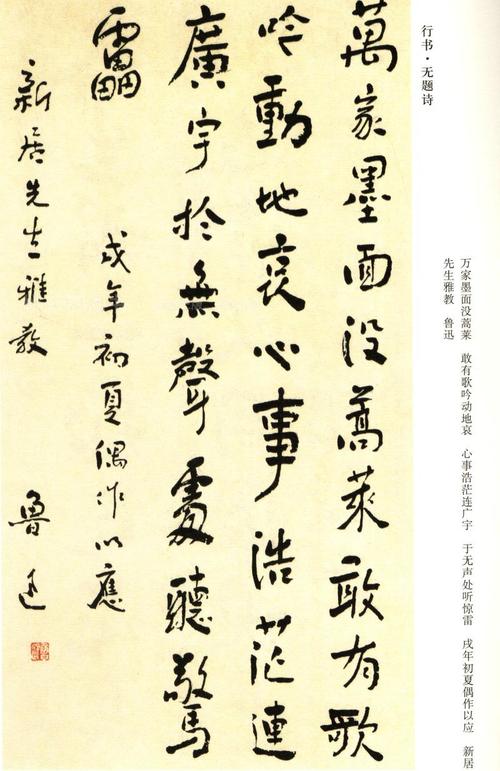 行书·无题诗
萬家墨面没蒿萊敢有歌
吟動地哀心事浩茫連
廣宇於無聲處聽驚
雷
戌年初夏偶作以應
新居先生雅教
魯迅
万家墨面没蒿莱　敢有歌吟动地哀　心事浩茫连广宇　于无声处听惊雷　戌年初夏偶作以应　新居
先生雅教　鲁迅